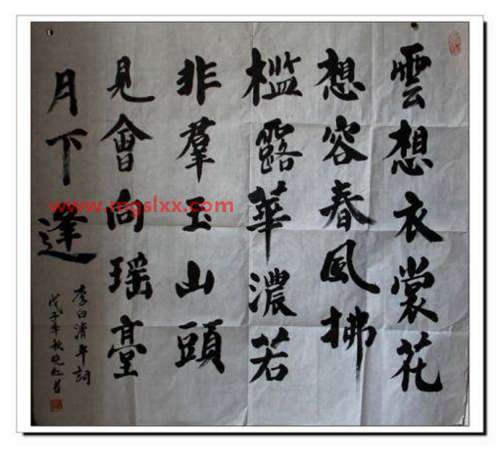 雲想衣裳花
想容春風拂
檻露華濃若
非羣玉山頭
見會向瑶臺
月下逢
李白清平詞
戊子年秋
www.mgslxx.com